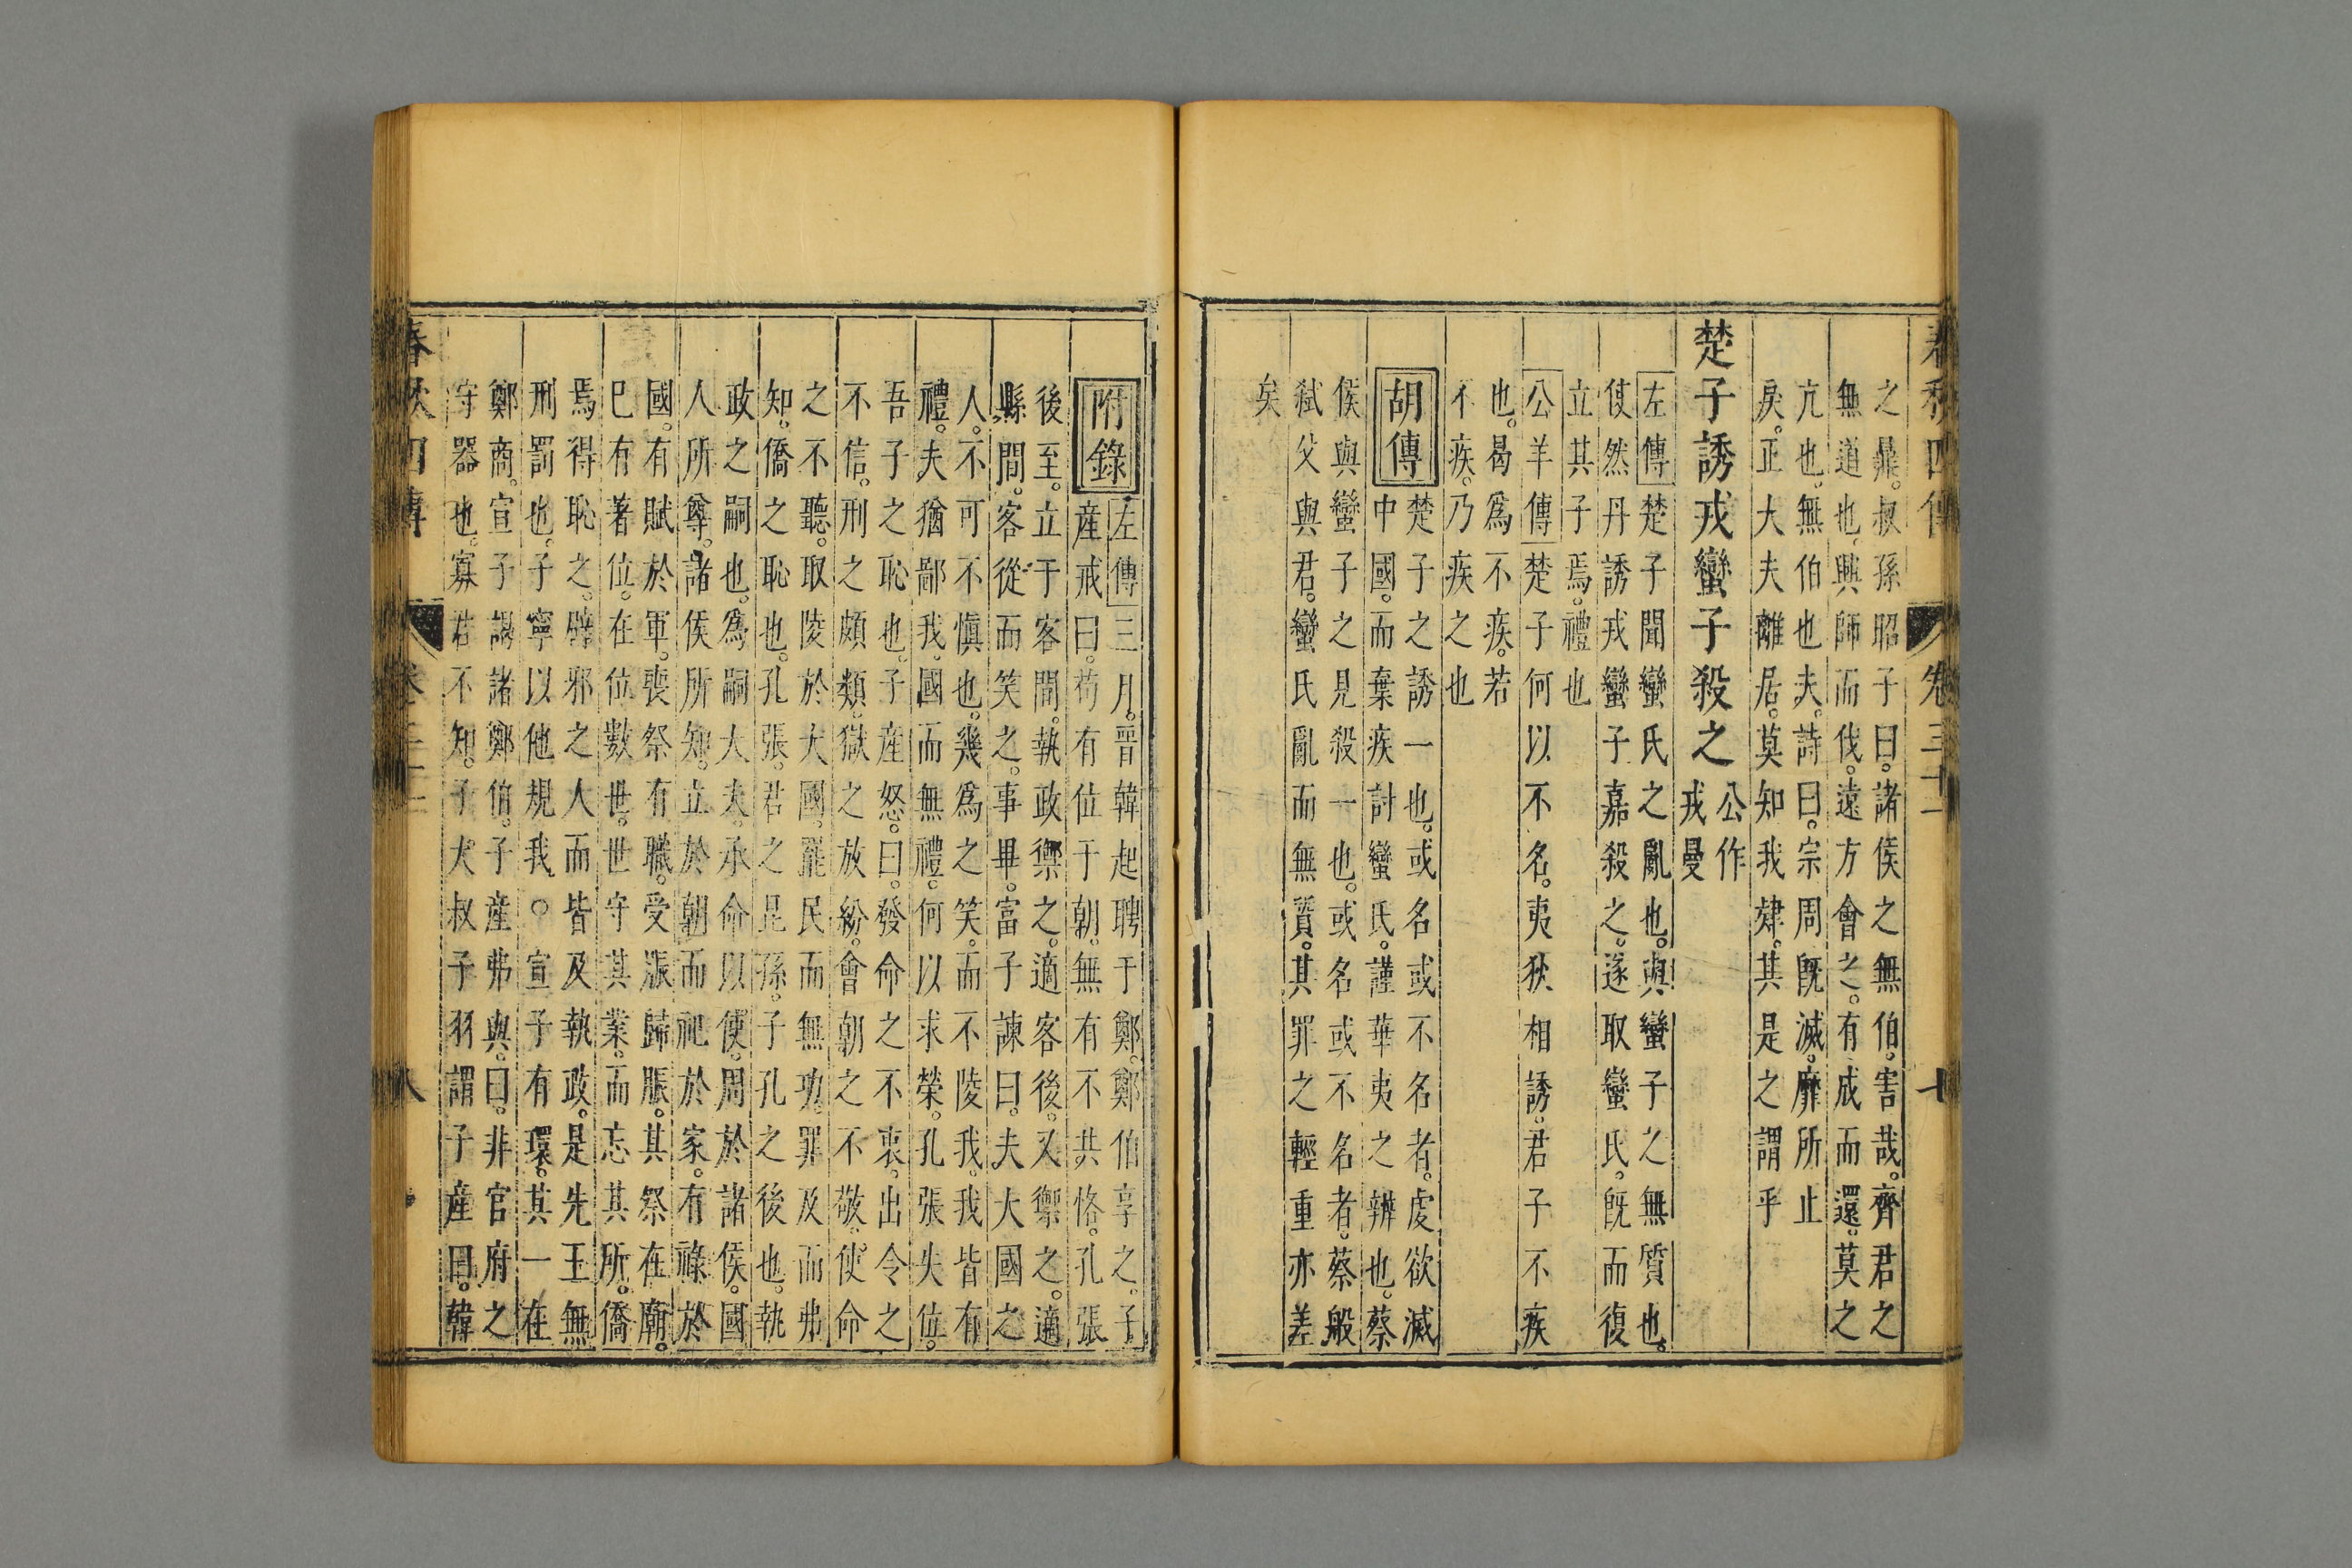 春秋四傳 卷三十一 七
之鼎。叔孫昭子曰。諸侯之無伯。害哉。齊君之
無道也。興師而伐。遠方會之。有成而還。莫之
亢也。無伯也夫。詩曰。宗周旣滅。靡所止
戾。正大夫離居。莫知我肄。其是之謂乎
楚子誘戎蠻子殺之
公作
戎曼
左傳楚子聞蠻氏之亂也。與蠻子之無質也。
使然丹誘戎蠻子嘉殺之。遂取蠻氏。旣而復
立其子焉。禮也
公羊傳楚子何以不名。夷狄相誘。君子不疾
也。曷爲不疾。若
不疾。乃疾之也
胡傳
楚子之誘一也。或名或不名者。虔欲滅
中國。而棄疾討蠻氏。謹華夷之辨也。蔡
侯與蠻子之見殺一也。或名或不名者。蔡般
弑父與君。蠻氏亂而無質。其罪之輕重亦差
矣
附錄
左傳三月。晉韓起聘于鄭。鄭伯享之。子
産戒曰。苟有位于朝。無有不共恪。孔張
後至。立于客間。執政禦之。適客後。又禦之。適
縣間。客從而笑之。事畢。富子諫曰。夫大國之
人。不可不愼也。幾爲之笑。而不陵我。我皆有
禮。夫猶鄙我。國而無禮。何以求榮。孔張失位。
吾子之恥也。子産怒。曰。發命之不衷。出令之
不信。刑之頗類。獄之放紛。會朝之不敬。使命
之不聽。取陵於大國。罷民而無功。罪及而弗
知。僑之恥也。孔張。君之昆孫。子孔之後也。執
政之嗣也。爲嗣大夫。承命以使。周於諸侯。國
人所尊。諸侯所知。立於朝而祀於家。有祿於
國。有賦於軍。喪祭有職。受脤歸脤。其祭在廟。
已有著位。在位數世。世守其業。而忘其所。僑
焉得恥之。辟邪之人而皆及執政。是先王無
刑罰也。子寧以他規我。○宣子有環。其一在
鄭商。宣子謁諸鄭伯。子産弗與。曰。非官府之
守器也。寡君不知。子大叔子羽謂子産曰。韓
春秋四傳 卷三十一 八